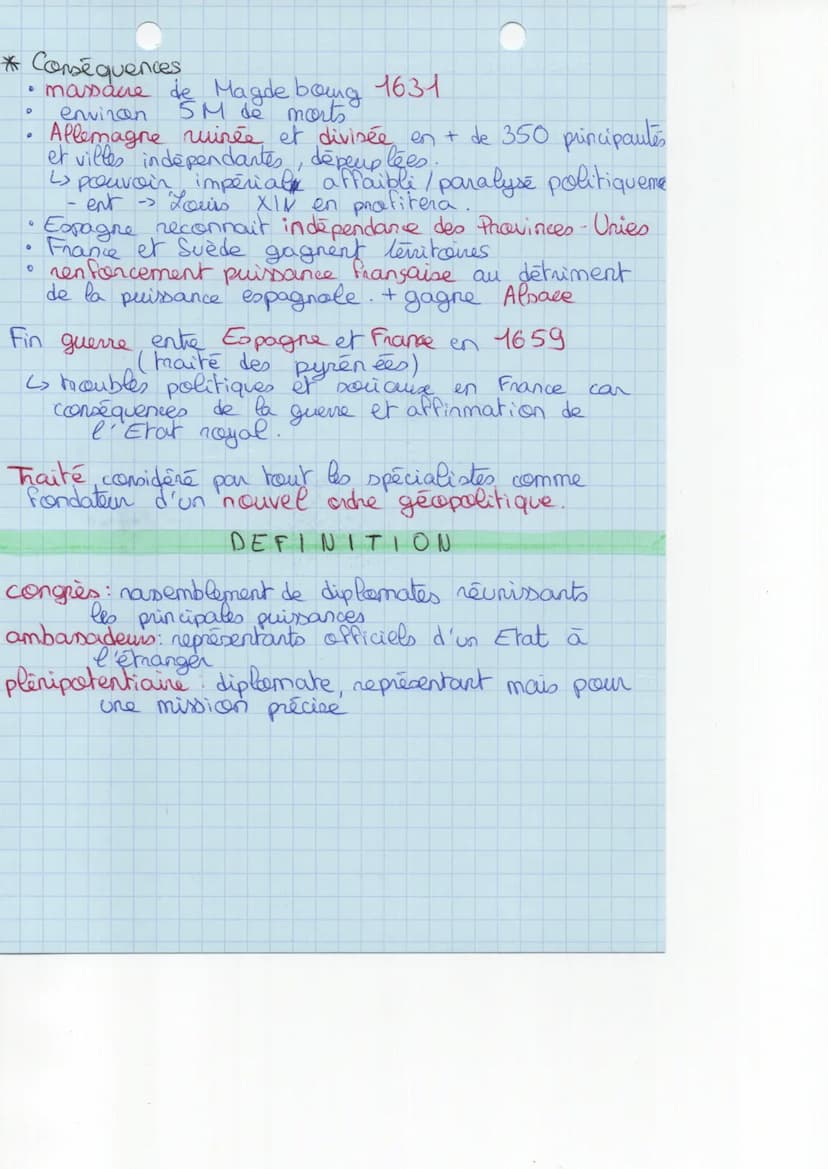 * Conséquences
• massacre de Magdebourg 1631
• environ 5M de morts
• Allemagne ruinée et divisée en + de 350 principautés
et villes indépendantes, dépeuplées.
↳ pouvoir impérial affaibli / paralysé politiqueme
- ent -> Louis XIV en profitera.
• Espagne reconnait indépendance des Provinces-Unies
• France et Suède gagnent territoires
• renforcement puissance française au détriment
de la puissance espagnole. + gagne Alsace
Fin guerre entre Espagne et France en 1659
(traité des pyrénées)
↳ troubles politiques et sociaux en France car
conséquences de la guerre et affirmation de
l'Etat royal.
Traité, considéré par tout les spécialistes comme
fondateur d'un nouvel ordre géopolitique.
DEFINITION
congrès : rassemblement de diplomates réunissants
les principales puissances
ambassadeurs : représentants officiels d'un Etat à
l'étranger
plénipotentiaire : diplomate, représentant mais pour
une mission précise